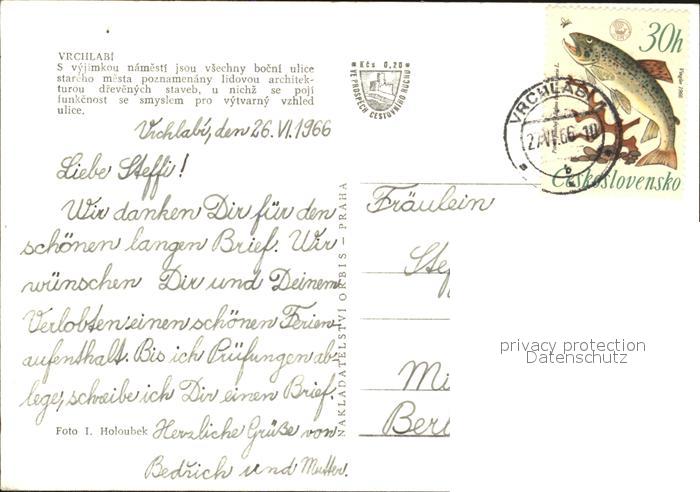 VRCHLABÍ
S výjimkou náměstí jsou všechny boční ulice
starého města poznamenány lidovou architek-
turou dřevěných staveb, u nichž se pojí
funkčnost se smyslem pro výtvarný vzhled
ulice.
Kčs 0,20
VE PROSPĚCH CESTOVNÍHO RUCHU
30h
VRCHLABÍ
Československo
Vrchlabí, den 26.VI.1966
Liebe Steffi!
Wir danken Dir für den
schönen langen Brief. Wir
wünschen Dir und Deinem
Verlobten einen schönen Ferien-
aufenthalt. Bis ich Prüfungen ab-
lege, schreibe ich Dir einen Brief.
Herzliche Grüße von
Bedřich und Mutter.
Foto I. Holoubek
NAKLADATELSTVÍ ORBIS – PRAHA
Fräulein
Stef
Mi
Berl
privacy protection
Datenschutz